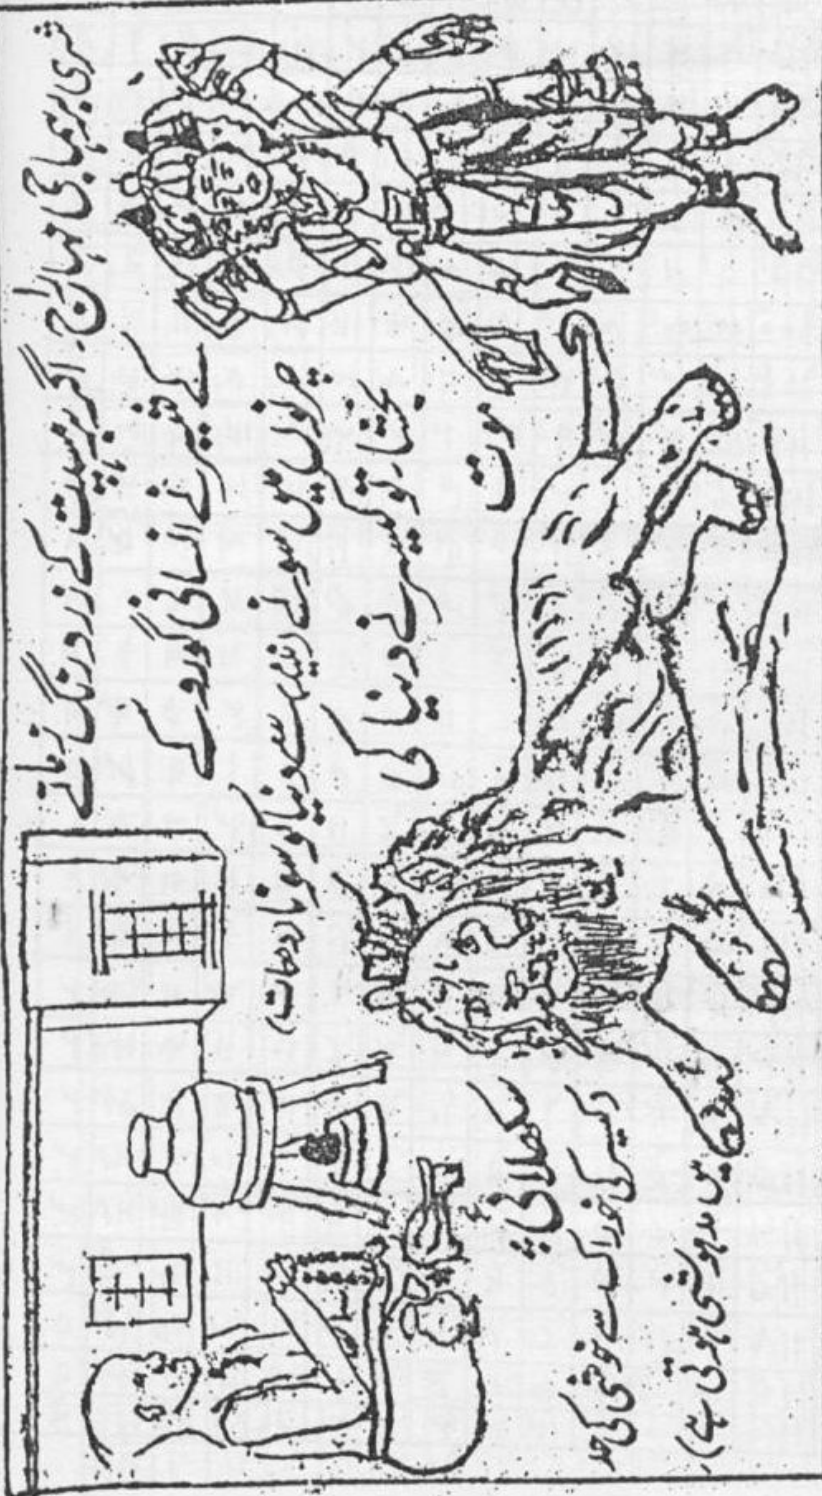 شری برہما جی مہاراج۔ اگر برہسپت کے زرد رنگ زمانے
کے شیر نے انسانی گورو کے
چرنوں میں سونے (نیند) سے دنیا کو سونا (دھات)
بخشا تو کیسر نے دنیا کی
موت بھلائی ہے
(کیسر کی خوراک سے خوشی کی حد
میں مدہوشی ہوتی ہے)